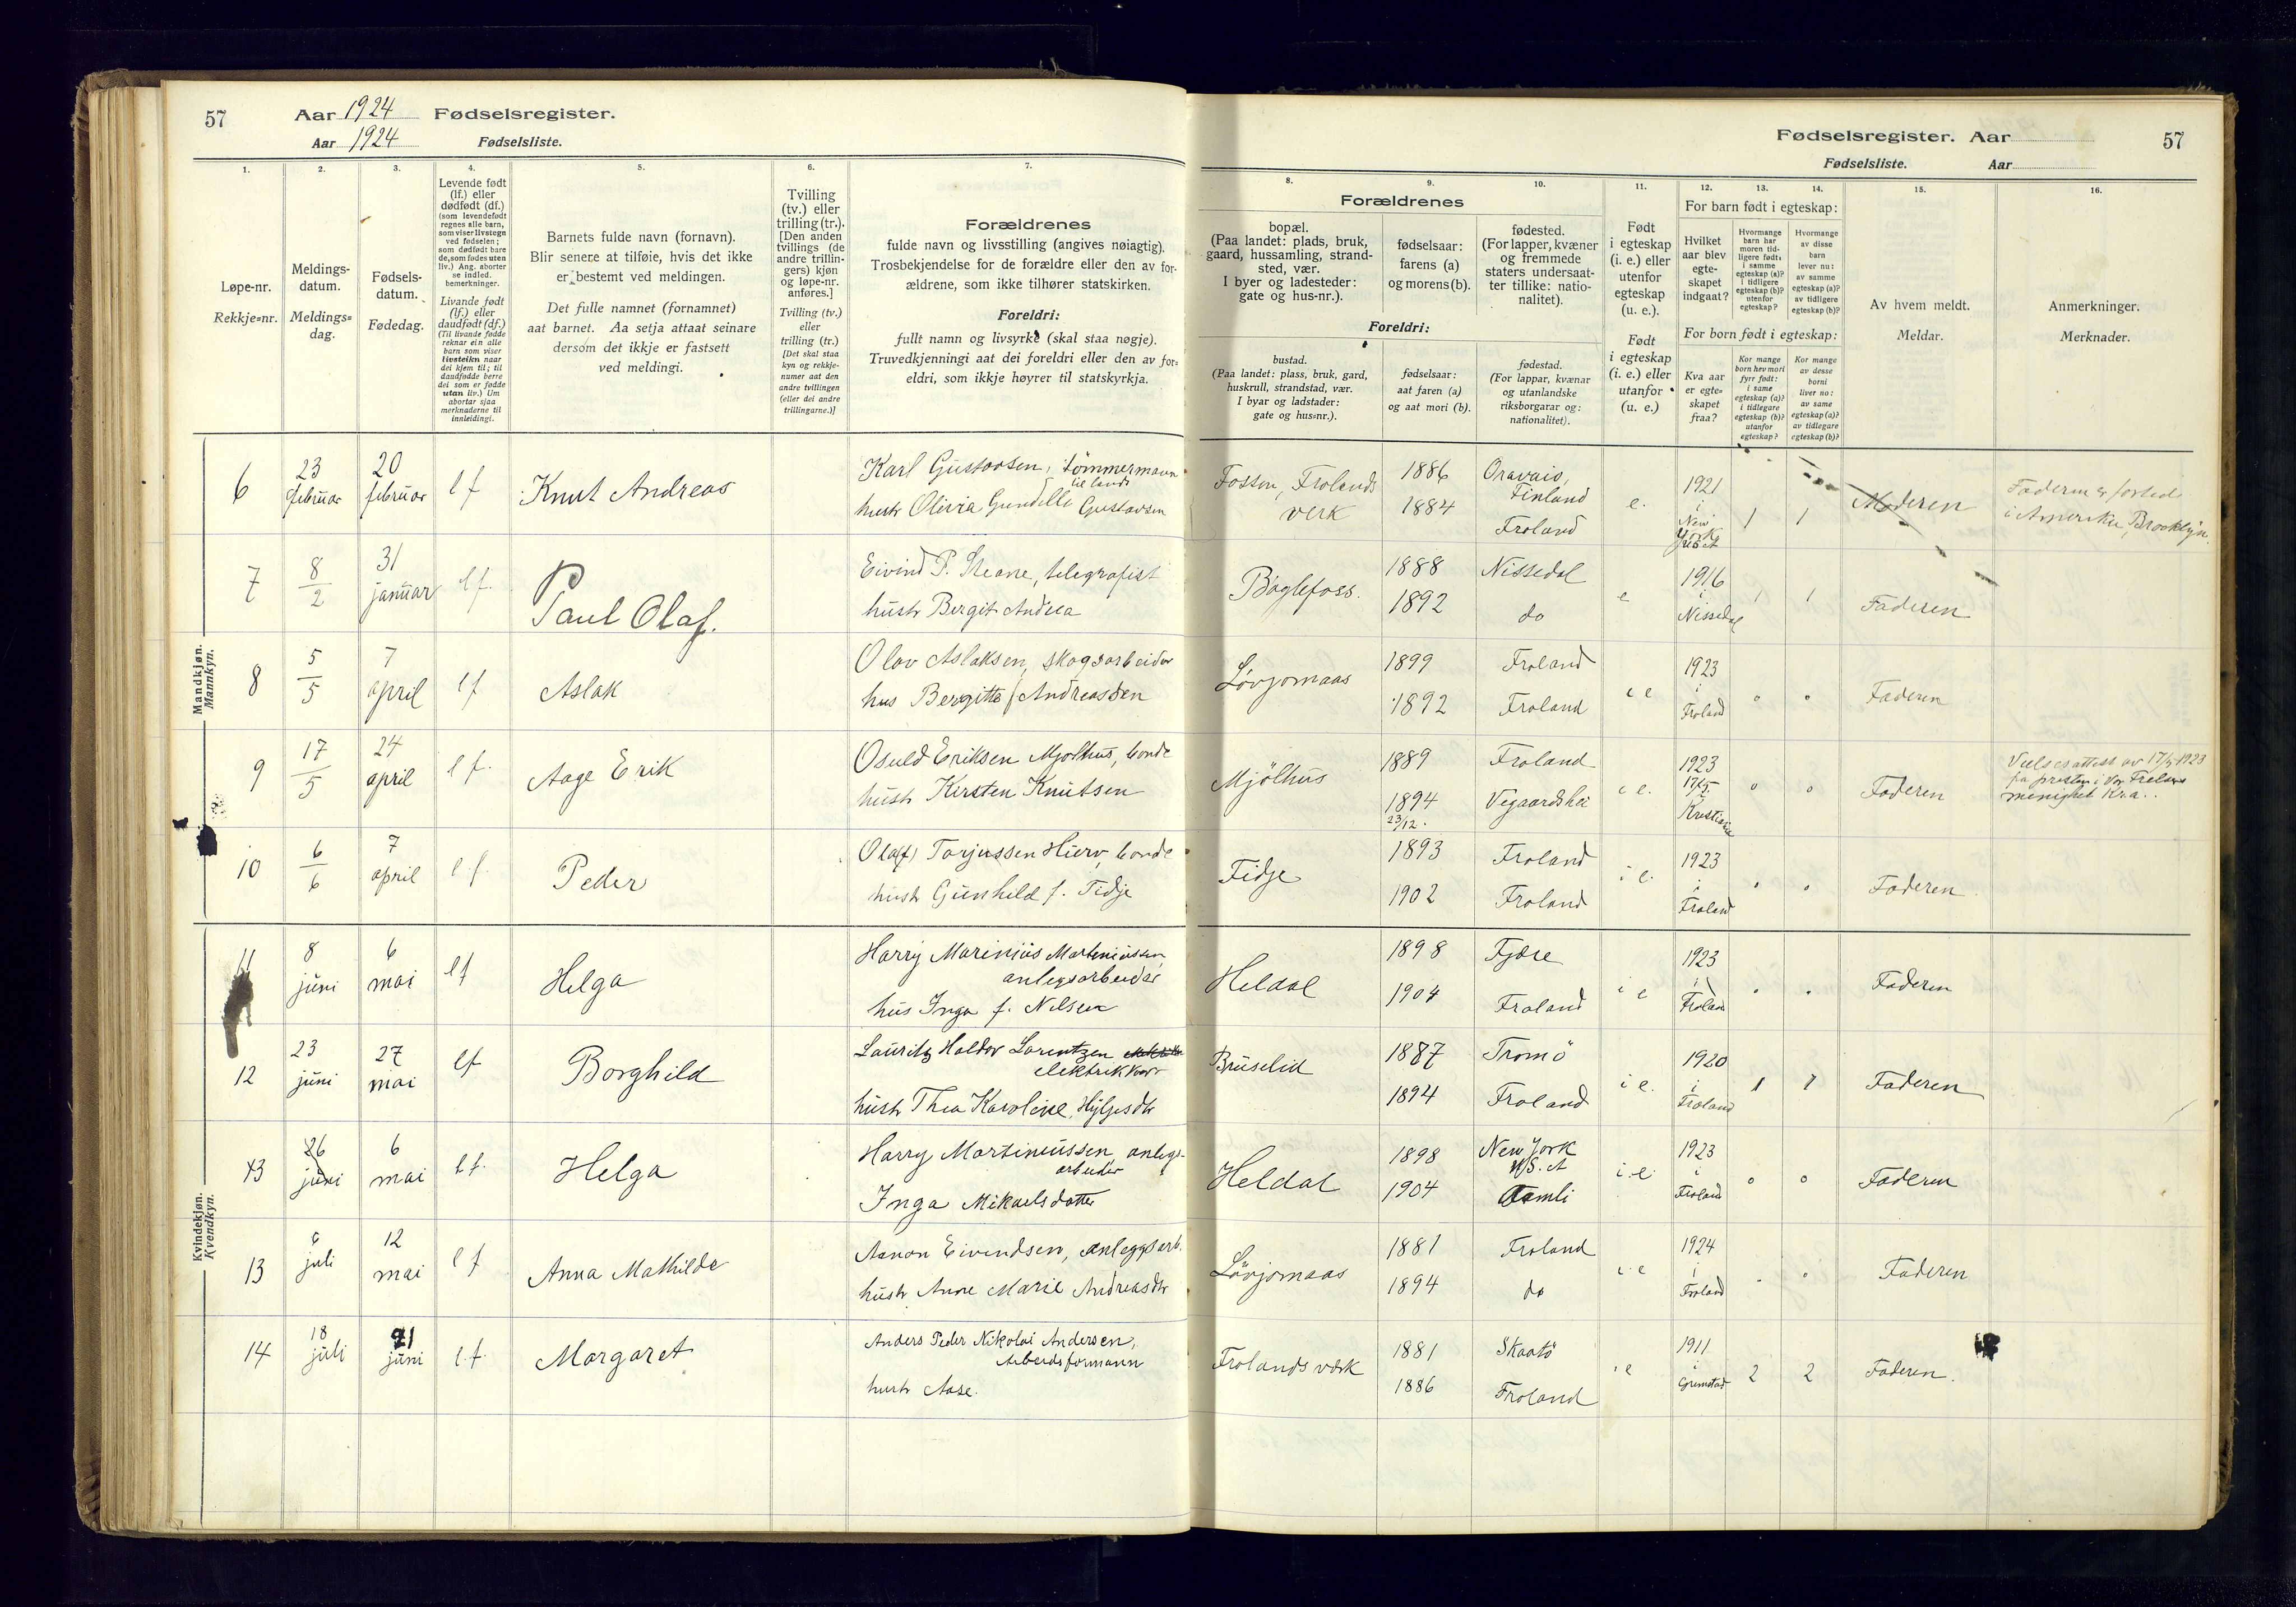 57
Aar 1924 Fødselsregister.
Aar 1924 Fødselsliste.
1.
2.
3.
4.
5.
6.
7.
Løpe-nr.
Rekkje=nr.
Meldings-
datum.
Meldings=
dag.
Fødsels-
datum.
Fødedag.
Levende født
(lf.) eller
dødfødt (df.)
(som levendefødt
regnes alle barn,
som viser livstegn
ved fødselen;
som dødfødt bare
de, som fødes uten
liv.) Ang. aborter
se indled.
bemerkninger.
Livande født
(lf.) eller
daudfødt (df.)
(Til livande fødde
reknar ein alle
barn som viser
livsteikn naar
dei kjem til; til
daudfødde berre
dei som er fødde
utan liv.) Um
abortar sjaa
merknaderne til
innleidingi.
Barnets fulde navn (fornavn).
Blir senere at tilføie, hvis det ikke
er bestemt ved meldingen.
Det fulle namnet (fornamnet)
aat barnet. Aa setja attaat seinare
dersom det ikkje er fastsett
ved meldingi.
Tvilling
(tv.) eller
trilling (tr.).
[Den anden
tvillings (de
andre trillin-
gers) kjøn
og løpe-nr.
anføres.]
Tvilling (tv.)
eller
trilling (tr.)
[Det skal staa
kyn og rekkje-
numer aat den
andre tvillingen
(eller dei andre
trillingarne.)]
Forældrenes
fulde navn og livsstilling (angives nøiagtig).
Trosbekjendelse for de forældre eller den av for-
ældrene, som ikke tilhører statskirken.
Foreldri:
fullt namn og livsyrke (skal staa nøgje).
Truvedkjenningi aat dei foreldri eller den av for=
eldri, som ikkje høyrer til statskyrkja.
Mandkjøn.
Mannkyn.
6 23 februar 20 februar lf Knut Andreas Karl Gustavsen, tømmermann
til lands
hustr Olivia Gundelle Gustavsen
7 8/2 31 januar lf. Paul Olaf. Eivind P. Steane, telegrafist
hustr Bergit Andrea
8 5/5 7 april lf Aslak Olav Aslaksen, skogsarbeider
hus Bergitte f Andreassen
9 17/5 24 april lf. Aage Erik Osuld Eriksen Mjølhus, bonde
hustr Kirsten Knutsen
10 6/6 7 april lf. Peder Ola(f) Torjussen Hurv, bonde
hustr Gunhild f. Fidje
Kvindekjøn.
Kvendkyn.
11 8 juni 6 mai lf Helga Harry Marinius Martiniussen
anlegsarbeider
hus Inga f. Nilsen
12 23 juni 27 mai lf Borghild Lauritz Haldor Lorentzen
elektrikker
hustr Thea Karoline Hyljesdtr
13 26 juni 6 mai lf. Helga Harry Martiniussen, anlegs-
arbeider
Inga Mikaelsdatter
13 6 juli 12 mai lf Anna Mathilde Aanon Eivindsen, anleggsarb.
hustr Anne Marie Andreasdtr
14 18 juli 21 juni lf. Margaret Anders Peder Nikolai Andersen,
Arbeidsformann
hustr Aase.
Fødselsregister. Aar
57
Fødselsliste. Aar
8.
9.
10.
11.
12.
13.
14.
15.
16.
Forældrenes
bopæl.
(Paa landet: plads, bruk,
gaard, hussamling, strand-
sted, vær.
I byer og ladesteder:
gate og hus-nr.).
fødselsaar:
farens (a)
og morens (b).
fødested.
(For lapper, kvæner
og fremmede
staters undersaat-
ter tillike: natio-
nalitet).
Foreldri:
bustad.
(Paa landet: plass, bruk, gard,
huskrull, strandstad, vær.
I byar og ladstader:
gate og hus=nr.).
fødselsaar:
aat faren (a)
og aat mori (b).
fødestad.
(For lappar, kvænar
og utanlandske
riksborgarar og:
nationalitet).
Født
i egteskap
(i. e.) eller
utenfor
egteskap
(u. e.).
Født
i egteskap
(i. e.) eller
utanfor
(u. e.)
For barn født i egteskap:
Hvilket
aar blev
egte-
skapet
indgaat?
Hvormange
barn har
moren tid-
ligere født:
i samme
egteskap (a)?
i tidligere
egteskap (b)?
utenfor
egteskap?
Hvormange
av disse
barn
lever nu:
av samme
egteskap (a)?
av tidligere
egteskap (b)?
For born født i egteskap:
Kva aar
er egte=
skapet
fraa?
Kor mange
born hev mori
fyrr født:
i same
egteskap (a)?
i tidlegare
egteskap (b)?
utanfor
egteskap?
Kor mange
av desse
borni
liver no:
av same
egteskap (a)?
av tidlegare
egteskap (b)?
Av hvem meldt.
Meldar.
Anmerkninger.
Merknader.
Fossen, Frolands verk 1886 1884 Oravais, Finland Froland e. 1921 i New York 1 1 Moderen Faderen er
i Amerika, Brooklyn.
Bøglefoss. 1888 1892 Nissedal do e 1916 i Nissedal 1 1 Faderen
Løvjomaas 1899 1892 Froland Froland i e 1923 i Froland " " Faderen
Mjölhus 1889 1894 23/12. Froland Vegaardshei i e. 1923 17/5 i Kristiania " " Faderen Vielsesattest av 17/5 1923
fra presten i Vor Frelsers
menighet Kr.a.
Fidje 1893 1902 Froland Froland i e. 1923 i Froland " " Faderen
Heldal 1898 1904 Fjære Froland i e 1923 i Froland " " Faderen
Bruselid 1887 1894 Tromö Froland i e. 1920 i Froland 1 1 Faderen
Heldal 1898 1904 New York U.S.A Aamli i e 1923 i Froland " " Faderen
Løvjomaas 1881 1894 Froland do i e 1924 i Froland " " Faderen
Frolands værk 1881 1886 Skaatö Froland i e 1911 i Grimstad 2 2 Faderen.